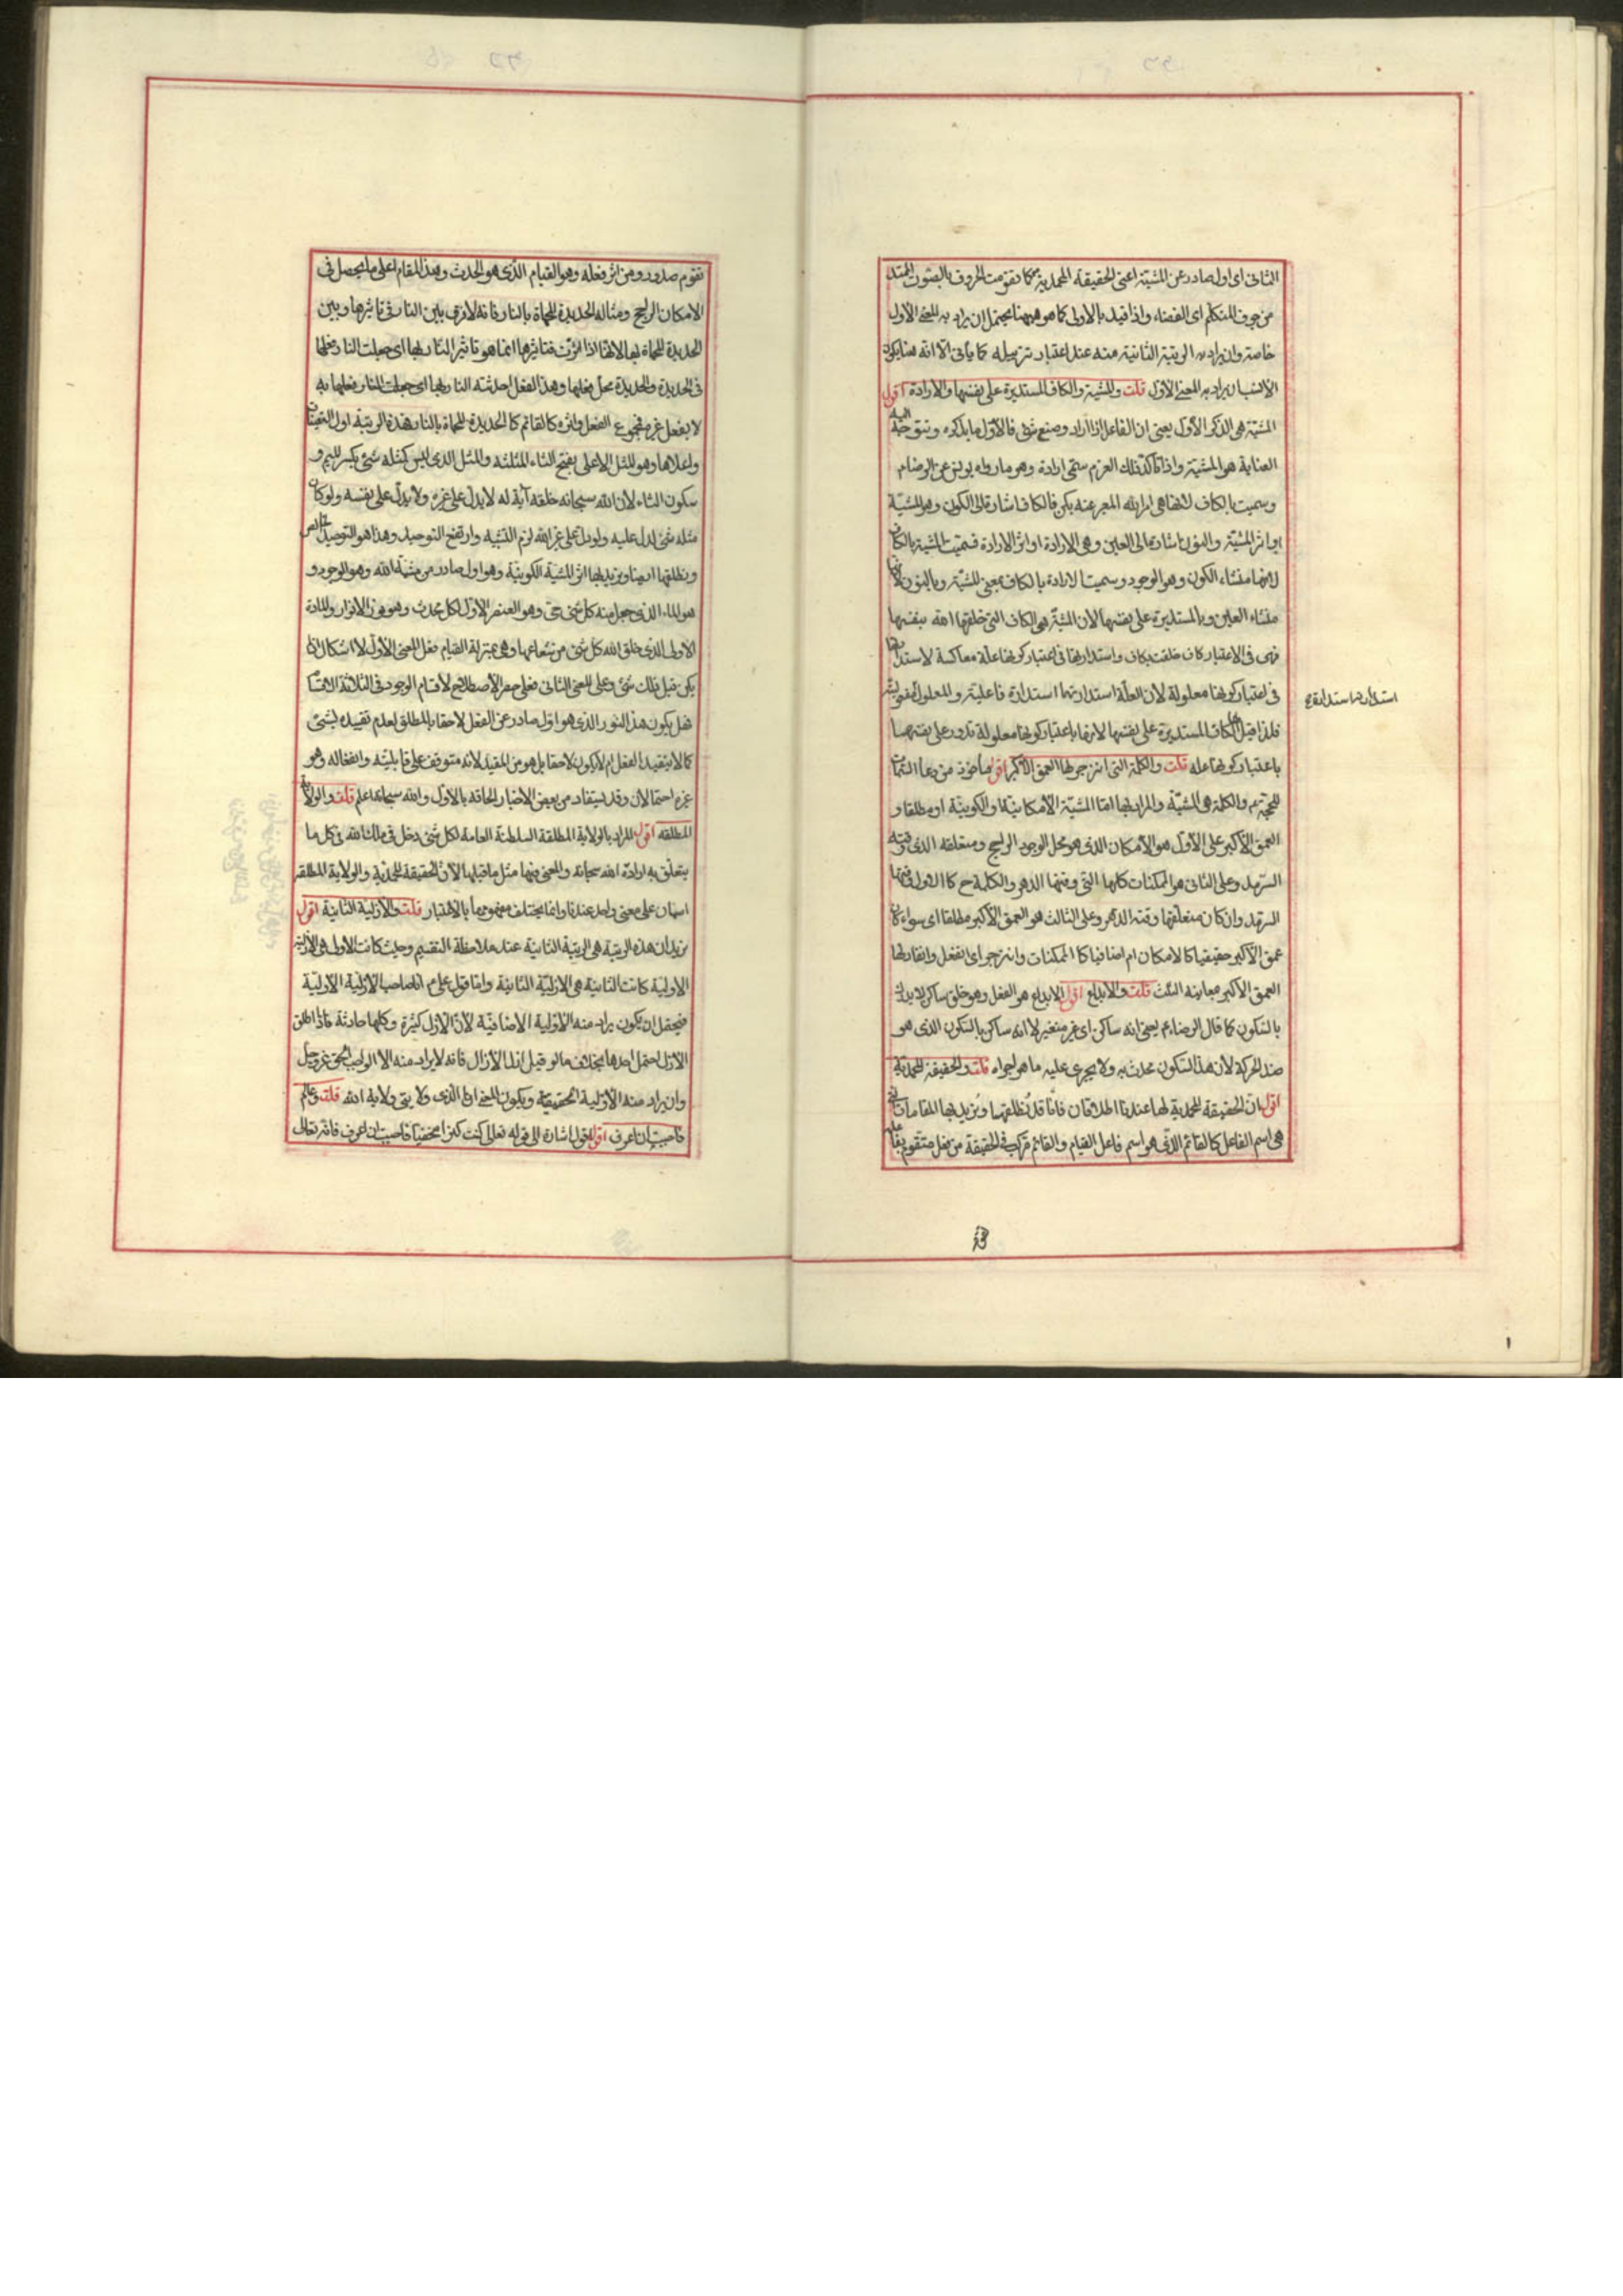 الثانى اى اول صادر عن المشيّة اعنى الحقيقة المحمدية ص كما تقومت الحروف بالصوت الممتد
من جوف المتكلم اى الفضاء واذا قيد بالاولى كما هو هيهنا يحتمل ان يراد به المعنى الاول
خاصة وان يراد به الرتبة الثانية منه عند اعتبار تنزيله كما يأتى الا انه هنا يكون
الانسب ان يراد به المعنى الاول قلت والمشية والكاف المستديرة على نفسها والارادة اقول
المشيّة هى الذكر الاول يعنى ان الفاعل اذا اراد صنع شئ فالاول ما يذكره وتتوجه اليه
العناية هو المشية واذا تأكد ذلك العزم سمّى ارادة وهو ما رواه يونس عن الرضا ع م
وسميت بالكاف لانها هى امر الله المعبر عنه بكن فالكاف اشارة الى الكون وهو المشيّة
او اثر المشيّة والنون اشارة الى العين وهى الارادة او اثر الارادة فسمّيت المشية بالكاف
لانها منشاء الكون وهو الوجود وسميت الارادة بالكاف بمعنى المشيّة وبالنون لانها
منشاء العين وبالمستديرة على نفسها لان المشيّة هى الكاف التى خلقها الله بنفسها
فهى فى الاعتبار كاف خلقت بكاف واستدارتها فى اعتبار كونها علة معاكسة لاستدارتها
فى اعتبار كونها معلولة لان العلّة استدارتها استدارة فاعلية والمعلول
استدارتها استدارة
فلذا قيل انها الكاف المستديرة على نفسها لانها باعتبار كونها معلولة تدور على نفسها
باعتبار كونها علة قلت والكلمة التى انزجر لها العمق الاكبر اقول مأخوذ من دعاء السمات
للحجة ع م والكلمة هى المشيّة والمراد بها امّا المشيّة الامكانية او الكونية او مطلقا و
العمق الاكبر على الاول هو الامكان الذى هو محل الوجود الراجح ومتعلقه الذى وقته
السرمد وعلى الثانى هو الممكنات كلها التى وقتها الدهر والكلمة ح كالاولى وقتها
السرمد وان كان متعلقها وقته الدهر وعلى الثالث هو العمق الاكبر مطلقا اى سواء كان
عمق الاكبر حقيقيا كالامكان ام اضافيا كالممكنات وانزجر اى انفعل وانقاد لها
العمق الاكبر قلت والابداع اقول الابداع هو الفعل وهو خلق ساكن لا يدرك
بالسكون كما قال الرضا ع م يعنى انه ساكن اى غير متغير لا انه ساكن بالسكون الذى هو
ضد الحركة لان هذا السكون محدث به ولا يجرى عليه ما هو اجراه قلت والحقيقة المحمدية
اقول ان الحقيقة المحمدية لها عندنا اطلاقان فانا قد نطلقها ونريد بها المقامات التى
هى اسم الفاعل كالقائم الذى هو اسم فاعل القيام والقائم مركب فى الحقيقة من فعل متقوم بفاعله
تقوم صدور ومن اثر فعله وهو القيام الذى هو الحدث وهذا المقام اعلى ما يحصل فى
الامكان الراجح ومثاله الحديدة المحماة بالنار فانه لا فرق بين النار فى تاثيرها وبين
الحديدة المحماة بها لانها اذا اثرت فتاثيرها انما هو تاثير النار بها اى جعلت النار فعلها
فى الحديدة والحديدة محل فعلها وهذا الفعل احدثته النار بها اى جعلت النار فعلها به
لا بفعل غيره فمجموع الفعل واثره كالقائم كالحديدة المحماة بالنار فهذه الرتبة اول التعينات
واعلاها وهو المثل الاعلى بفتح الثاء المثلثة والمثل الذى ليس كمثله شئ بكسر الميم و
سكون الثاء لان الله سبحانه خلقه آية له لا يدل على غيره ولا يدل على نفسه ولو كان
مثله شئ لدل عليه ولو دل على غير الله لزم التشبيه وارتفع التوحيد وهذا هو التوحيد الخالص
ونطلقها ايضا ونريد بها اثر المشية الكونية وهو اول صادر من مشية الله وهو الوجود و
هو الماء الذى جعل منه كل شئ حى وهو العنصر الاول لكل محدث وهو نور الانوار والمادة
الاولى الذى خلق الله كل شئ من شعاعها وهى بمنزلة القيام فعلى المعنى الاول لا اشكال اذ لم
يكن قبل ذلك شئ وعلى المعنى الثانى فعلى حصر الاصطلاح لاقسام الوجود فى الثلاثة الاقسام
هل يكون هذا النور الذى هو اول صادر عن الفعل لاحقا بالمطلق لعدم تقييده بشئ
كما لا يتقيد الفعل ام لا يكون لاحقا بل هو من المقيد لانه متوقف على قابليته وانفعاله وهو
غيره احتمالان وقد يستفاد من بعض الاخبار الحاقه بالاول والله سبحانه اعلم قلت والولاية
المطلقه اقول المراد بالولاية المطلقة السلطنة العامة لكل شئ دخل فى ملك الله فى كل ما
يتعلق به ارادة الله سبحانه والمعنى فيها مثل ما قبلها لان الحقيقة المحمدية والولاية المطلقة
اسمان على معنى واحد عندنا وانما يختلف مفهومهما بالاعتبار قلت والازلية الثانية اقول
نريد ان هذه الرتبة هى الرتبة الثانية عند ملاحظة التقسيم وحيث كانت الاولى هى الازلية
الاولية كانت الثانية هى الازلية الثانية واما قول على ع م انا صاحب الازلية الاولية
فيحتمل ان يكون يراد منه الاولية الاضافية لان الازل كثيرة وكلها حادثة فاذا اطلق
الازل احتمل احدها بخلاف ما لو قيل ازل الازال فانه لا يراد منه الا الواجب الحق عز وجل
وان يراد منه الازلية الحقيقية ويكون المعنى انا الذى ولايتى ولاية الله قلت وعالم
فاحببت ان اعرف اقول اشارة الى قوله تعالى كنت كنزا مخفيا فاحببت ان اعرف فانه تعالى